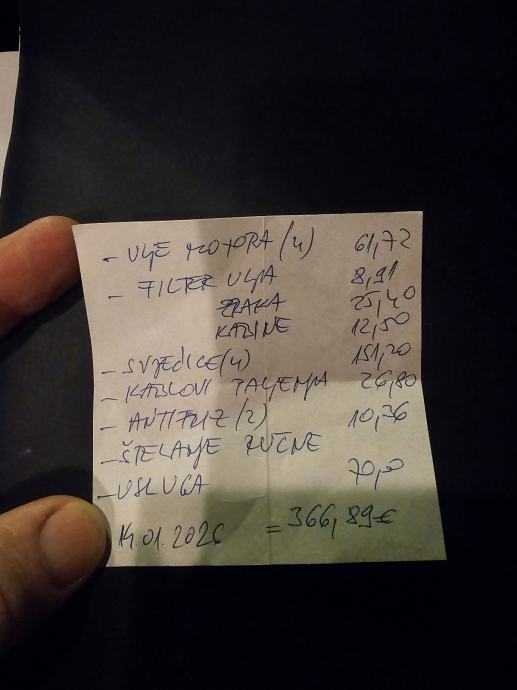 - ULJE MOTORA (4) 61,72
- FILTER ULJA 8,91
ZRAKA 25,40
KABINE 12,50
- SVJEĆICE (4) 151,20
- KABLOVI PALJENJA 26,80
- ANTIFRIZ (2) 10,36
- ŠTELANJE RUČNE
- USLUGA 70,00
14.01.2026 = 366,89 €